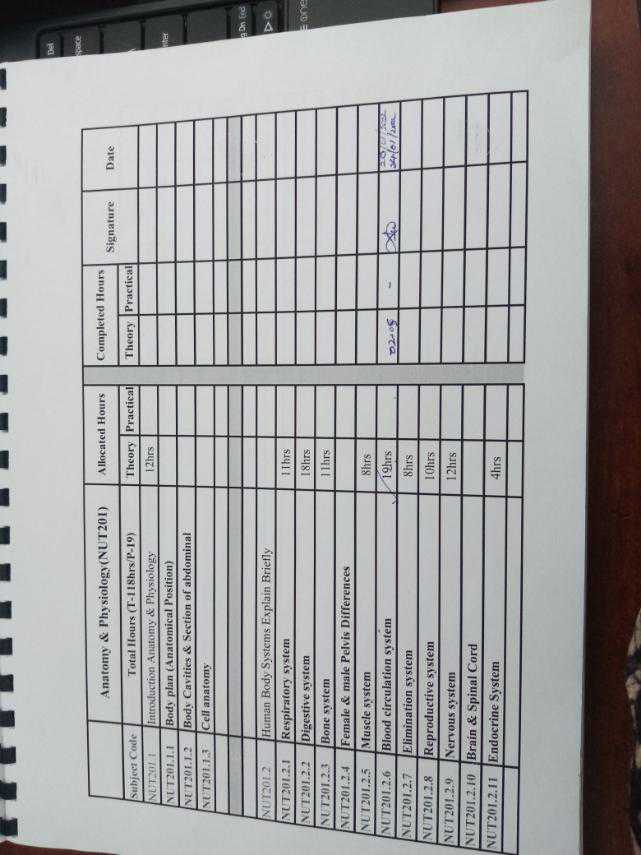 Anatomy & Physiology(NUT201) Allocated Hours Completed Hours Signature Date
Subject Code Total Hours (T-118hrs/P-19) Theory Practical Theory Practical
NUT201.1 Introduction Anatomy & Physiology 12hrs
NUT201.1.1 Body plan (Anatomical Position)
NUT201.1.2 Body Cavities & Section of abdominal
NUT201.1.3 Cell anatomy
NUT201.2 Human Body Systems Explain Briefly
NUT201.2.1 Respiratory system 11hrs
NUT201.2.2 Digestive system 18hrs
NUT201.2.3 Bone system 11hrs
NUT201.2.4 Female & male Pelvis Differences
NUT201.2.5 Muscle system 8hrs
NUT201.2.6 Blood circulation system 19hrs 02.05 -
NUT201.2.7 Elimination system 8hrs
NUT201.2.8 Reproductive system 10hrs
NUT201.2.9 Nervous system 12hrs
NUT201.2.10 Brain & Spinal Cord
NUT201.2.11 Endocrine System 4hrs
Del